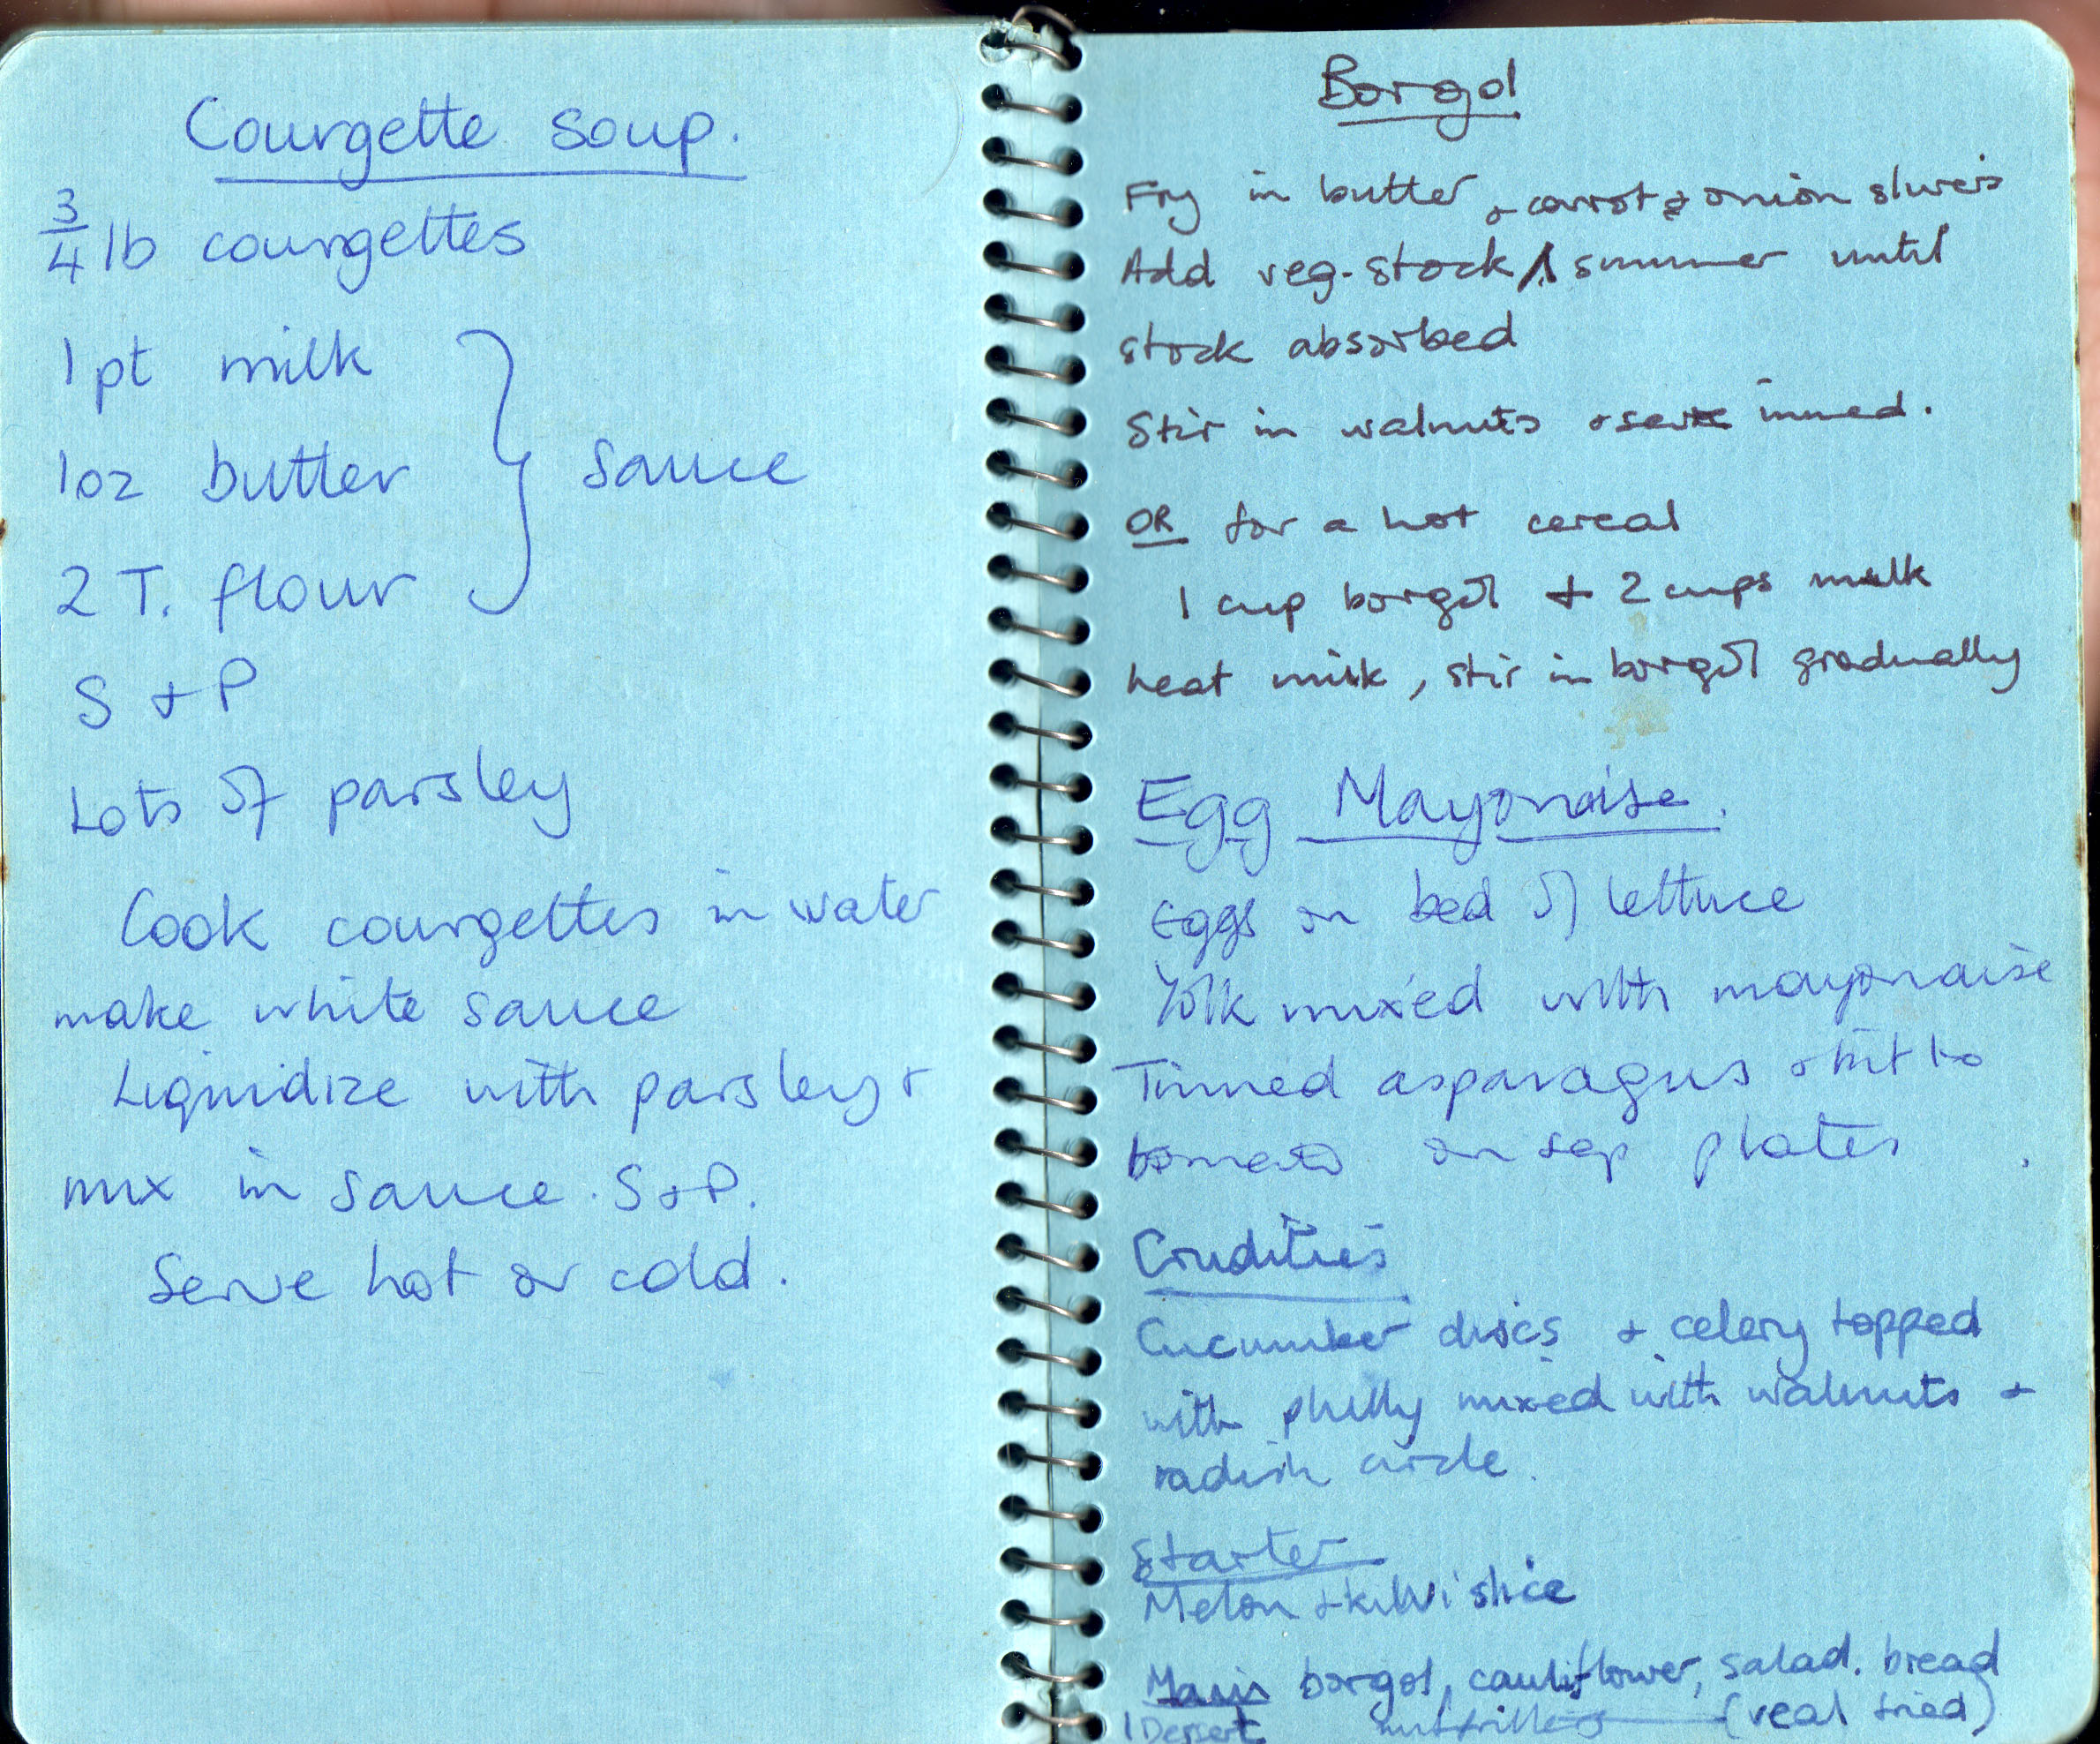 Courgette soup.
3/4 lb courgettes
1 pt milk
1oz butter } sauce
2 T. flour
S + P
Lots of parsley
Cook courgettes in water
make white sauce
Liquidize with parsley +
mix in sauce. S+P.
Serve hot or cold.
Borgol
Fry in butter + carrot & onion slivers
Add veg. stock simmer until
stock absorbed
Stir in walnuts + serve immed.
OR for a hot cereal
1 cup borgol + 2 cups milk
heat milk, stir in borgol gradually
Egg Mayonaise.
Eggs on bed of lettuce
Yolk mixed with mayonaise
Tinned asparagus + hit to
tomato on sep plates
Crudities
Cucumber discs + celery topped
with philly mixed with walnuts +
radish circle.
Starter
Melon + kiwi slice
Main borgol, cauliflower, salad. bread
Dessert (veal fried)